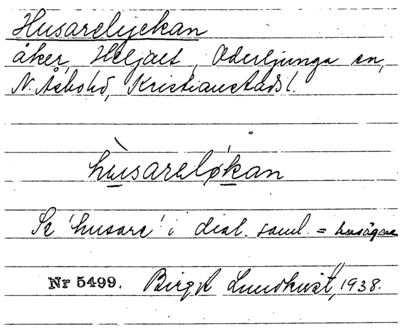 Husarelyckan
åker, Heljalt, Oderljunga sn,
N. Åsbohd, Kristianstads l.
hùsareløkan
Se 'husare' i dial. saml. = husägare
Nr 5499. Birgit Lundkvist, 1938.